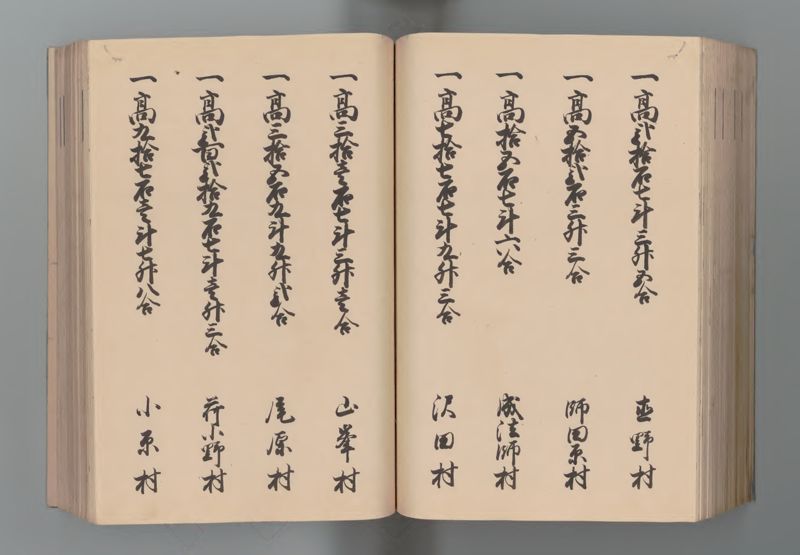 一高弐拾石七斗三舛五合 直野村
一高五拾弐石三舛三合 師田原村
一高拾五石七斗六合 成法師村
一高七拾七石七斗九舛三合 沢田村
一高三拾壱石七斗三舛壱合 山峯村
一高三拾五石九斗九舛弐合 尾原村
一高弐百弐拾九石七斗壱舛三合 荷小野村
一高九拾七石壱斗七舛八合 小原村